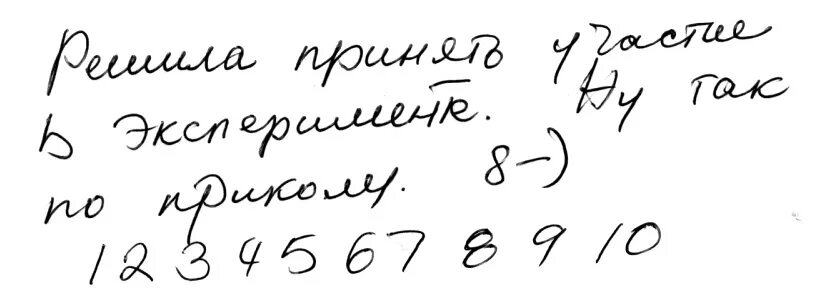 Решила принять участие
в эксперименте. Ну так
по приколу. 8-)
1 2 3 4 5 6 7 8 9 10